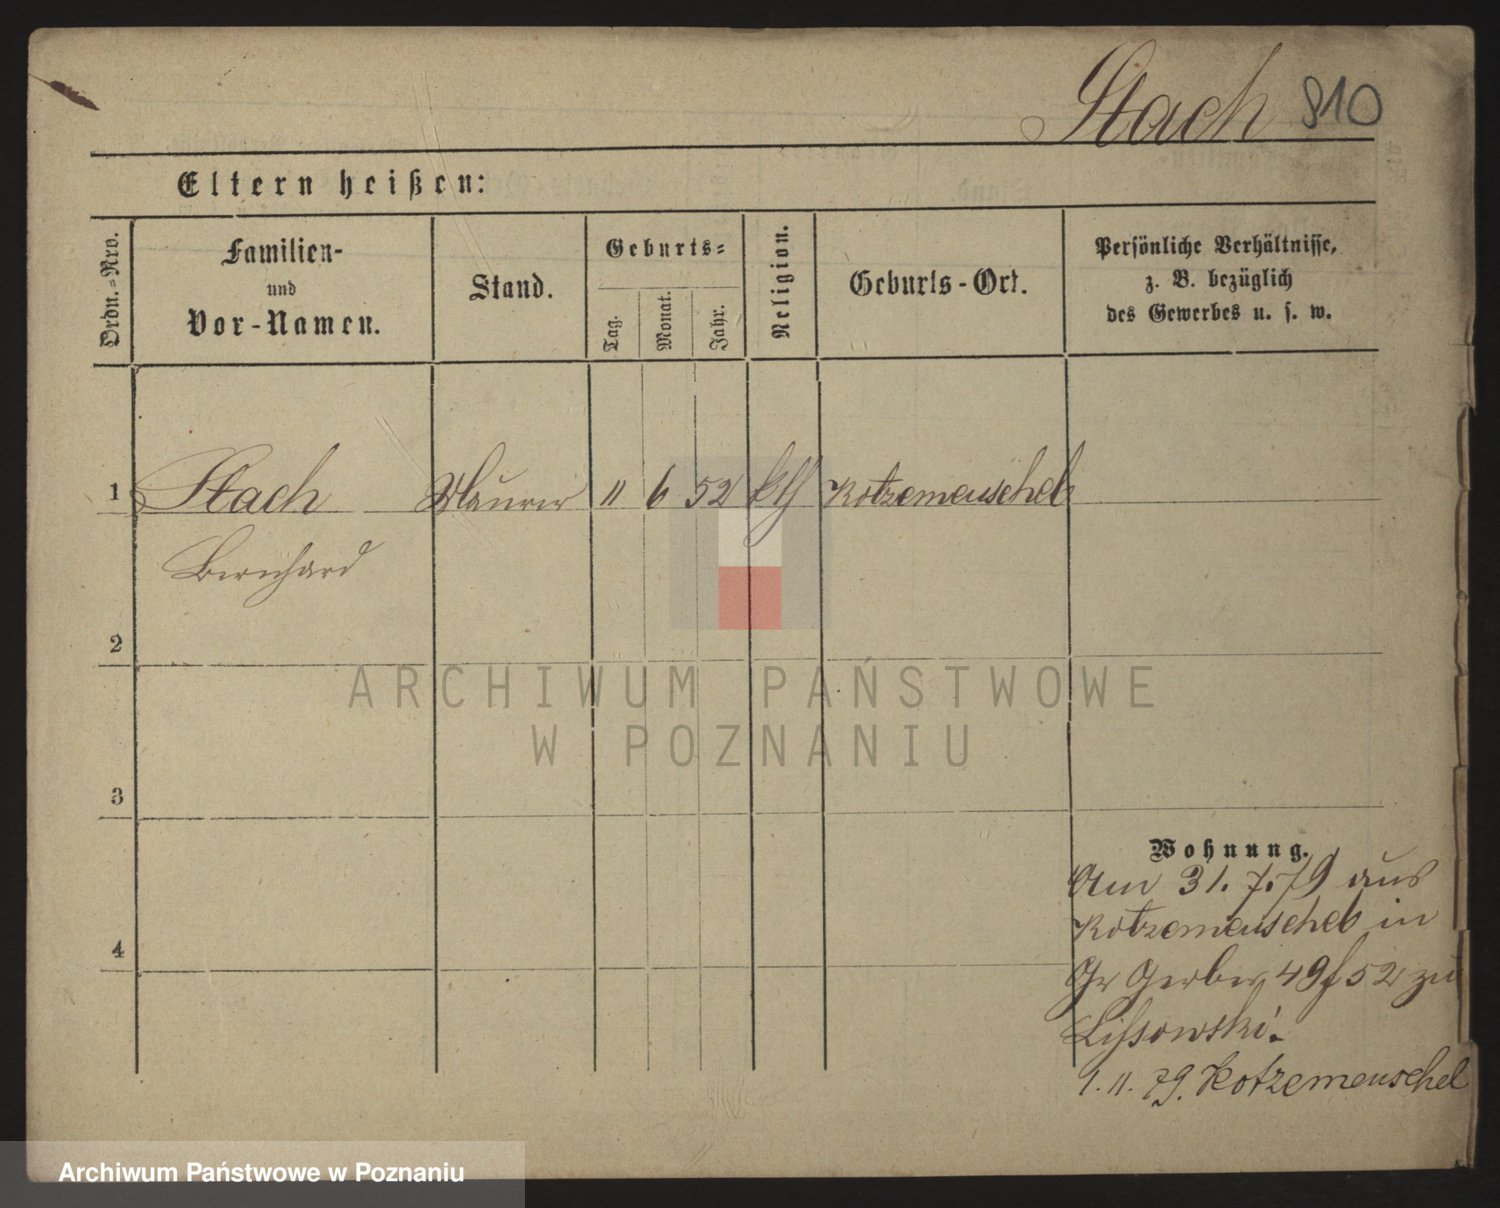 Stach 810
Eltern heißen:
Ordn.=Nro.
Familien-
und
Vor-Namen.
Stand.
Geburts=
Tag.
Monat.
Jahr.
Religion.
Geburts-Ort.
Persönliche Verhältnisse,
z. B. bezüglich
des Gewerbes u. s. w.
1 Stach Maurer 11 6 52 kth Kotzemeuschel
Bernhard
2
3
4
Wohnung.
Am 31. 7. 79 aus
Kotzemeuschel in
Gr Gerber 49/52 zu
Lissowski.
1. 11. 79. Kotzemeuschel
ARCHIWUM PAŃSTWOWE
W POZNANIU
Archiwum Państwowe w Poznaniu